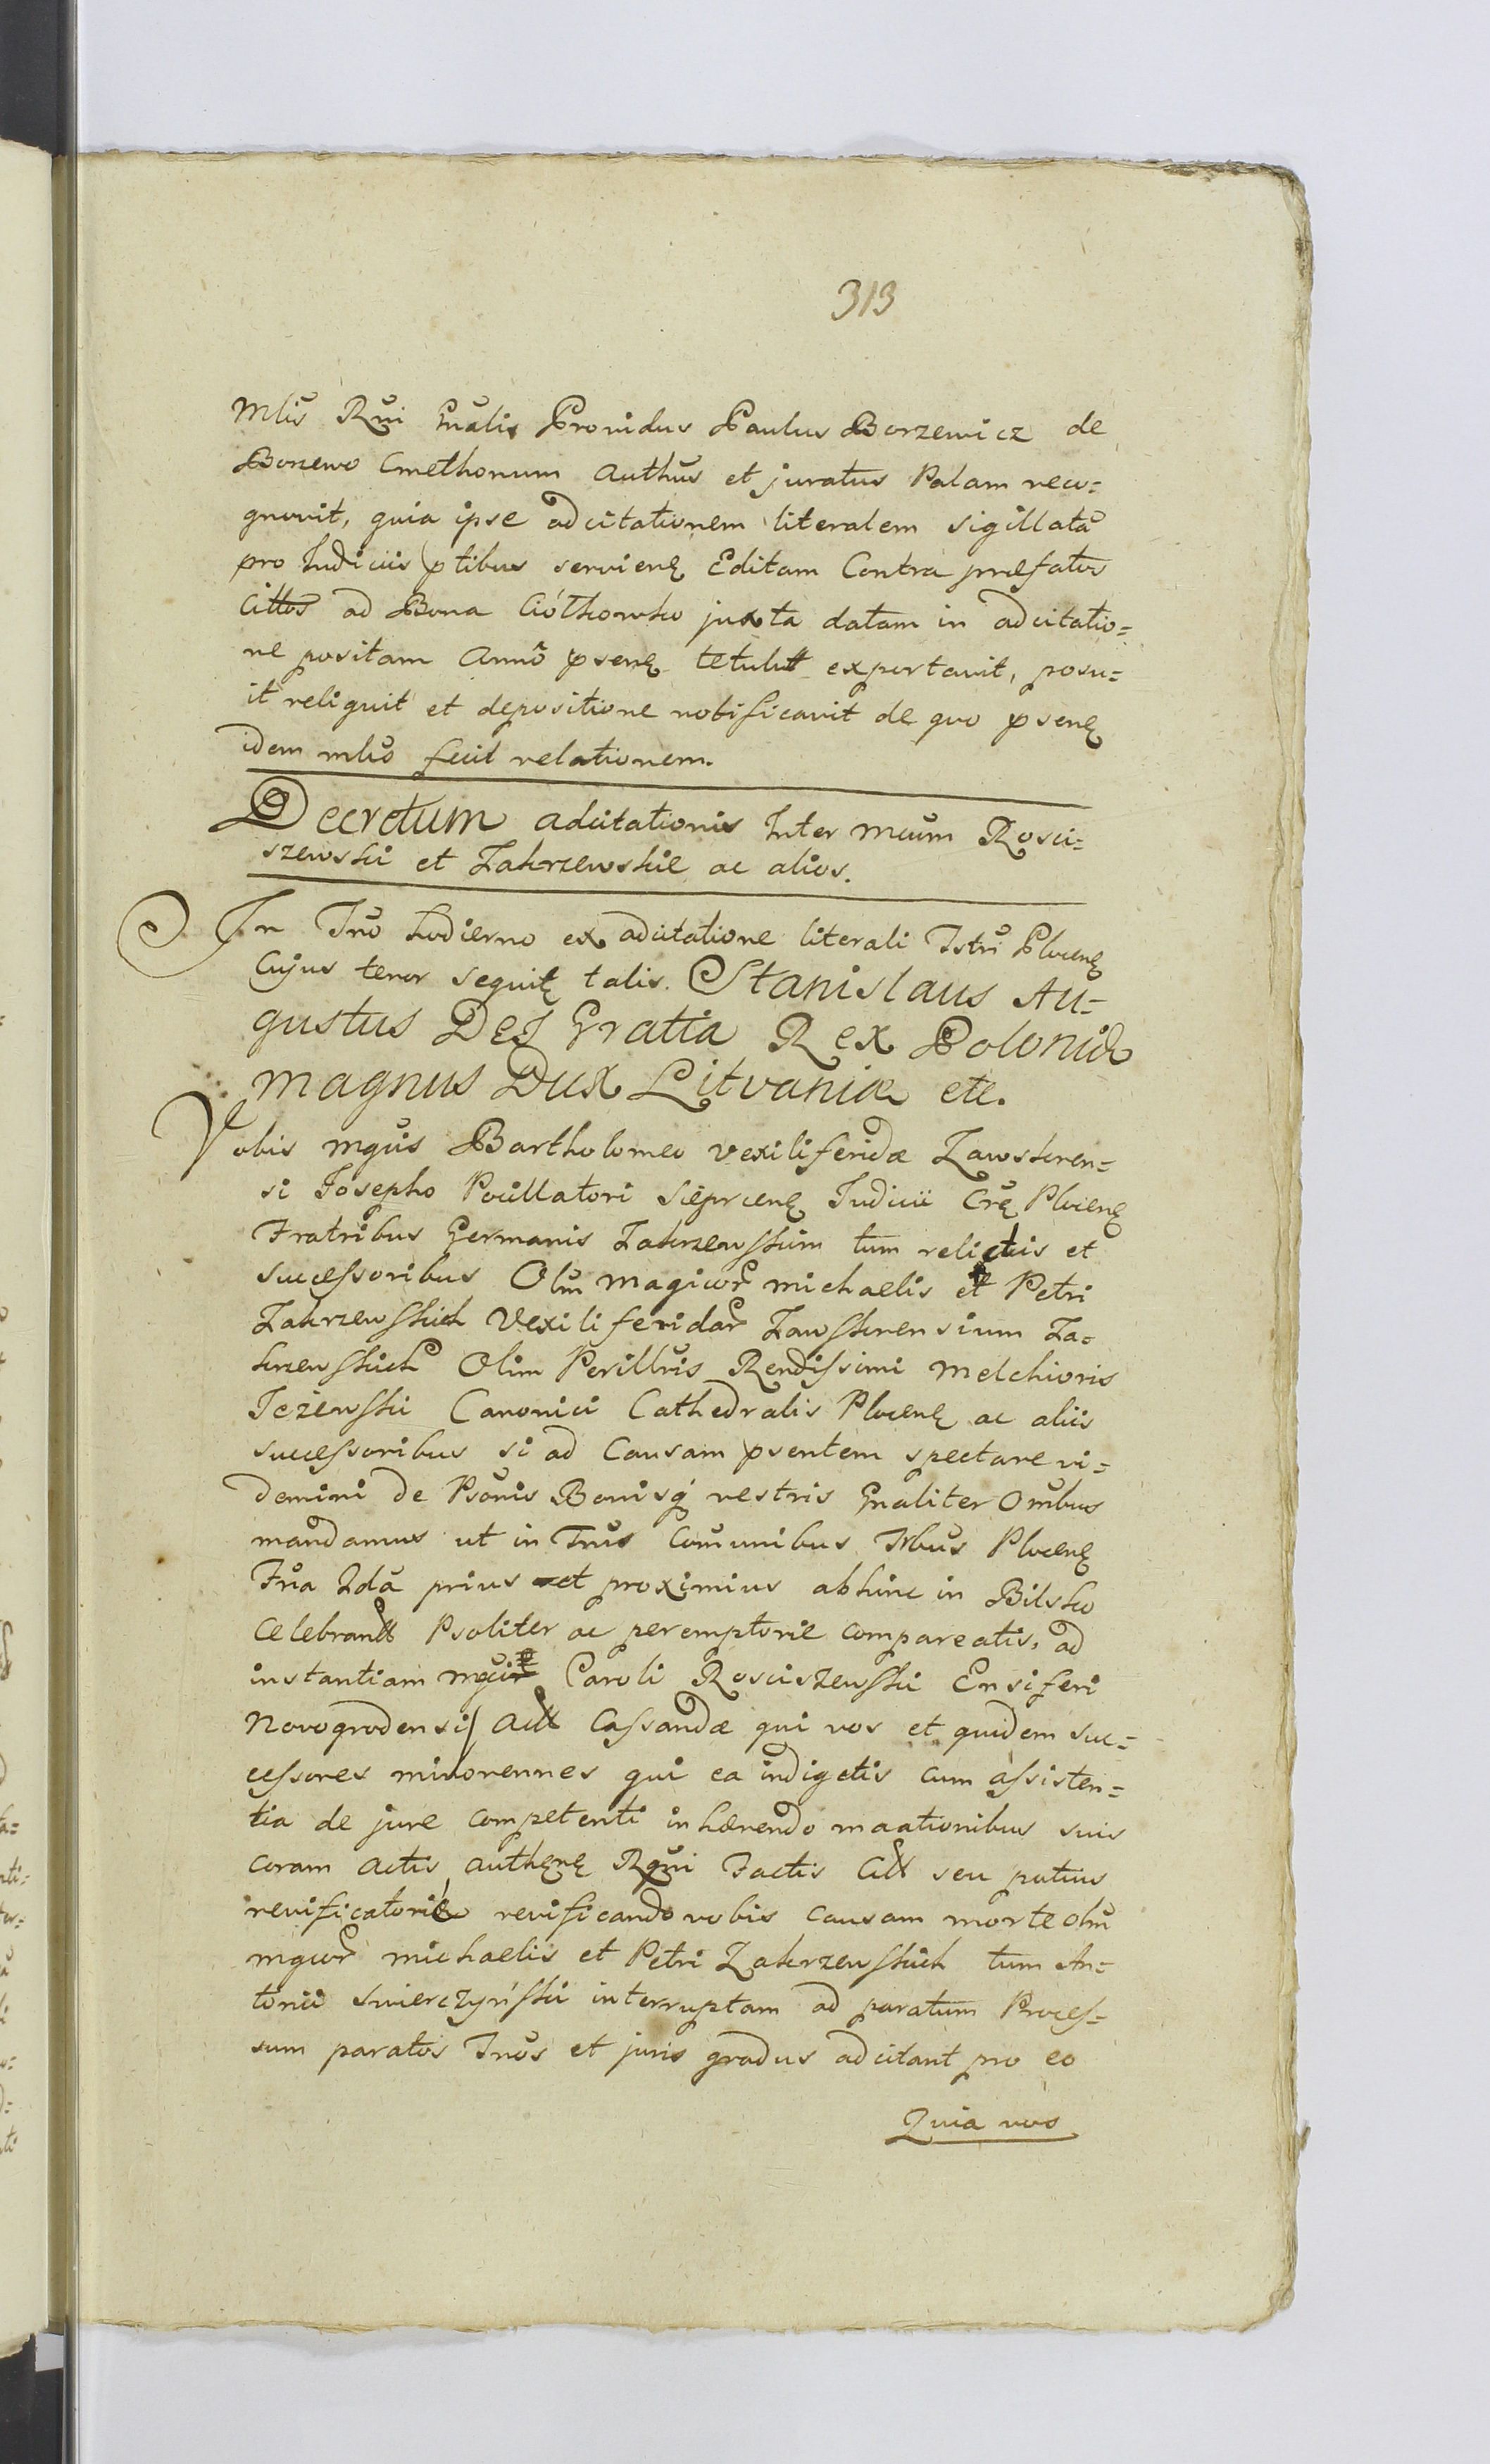 313
Mlis Rni Gnalis Providus Paulus Borzewicz de
Borzewo Cmethonum Authus et juratus Palam reco=
gnovit, quia ipse adcitationem literalem sigillatã
pro Judiciis ptibus servienꝭ Editam Contra præfatos
Cittos ad Bona Ciółkowko juxta datam in adcitatio=
ne positam Anno psenꝭ tetulit exportavit, posu=
it reliquit et depositione notificavit de quo psenꝭ
idem mlis fecit relationem.
Decretum adcitationis Inter Mcum Rosci=
szewski et Zakrzewskie ac alios.
In Tno hodierno ex adcitatione literali Tstri Plocenꝭ
Cujus tenor sequitꝭ talis. Stanislaus Au=
gustus Dei Gratia Rex Poloniæ
Magnus Dux Litvaniæ etc.
Vobis mgcis Bartholomeo vexiliferidæ Zawskren=
si Josepho Pocillatori Sieprcenꝭ Judicii Crꝭ Plocenꝭ
Fratribus Germanis Zakrzewskim tum relictis et
successoribus Olim Magicor Michaelis et Petri
Zakrzewskich Vexiliferidar Zawskrensium Za=
krzewskich Olim Perillris Rendissimi Melchioris
Jeżewski Canonici Cathedralis Plocenꝭ ac aliis
successoribus si ad Causam psentem spectare vi=
demini de Psonis Bonisq vestris Gnaliter Omibus
mandamus ut in Tnis Comunibus Trbus Plocenꝭ
Fria 2da prius et proximius abhinc in Bilsko
Celebrand Psoliter ac peremptorie compareatis, ad
instantiam mgci Caroli Rosciszewski Ensiferi
Novogrodensis Act Cassandæ qui vos et quidem suc=
cessores minorennes qui ea indigetis cum assisten=
tia de jure competenti inhærendo maationibus suis
coram actis authenꝭ Rgni Factis Citt seu potius
revificatorie revificando vobis causam morte olim
mgcor Michaelis et Petri Zakrzewskich tum An=
tonii Swierczyński interruptam ad paratum Proces=
sum paratos Tnos et juris gradus adcitant pro eo
Quia vos